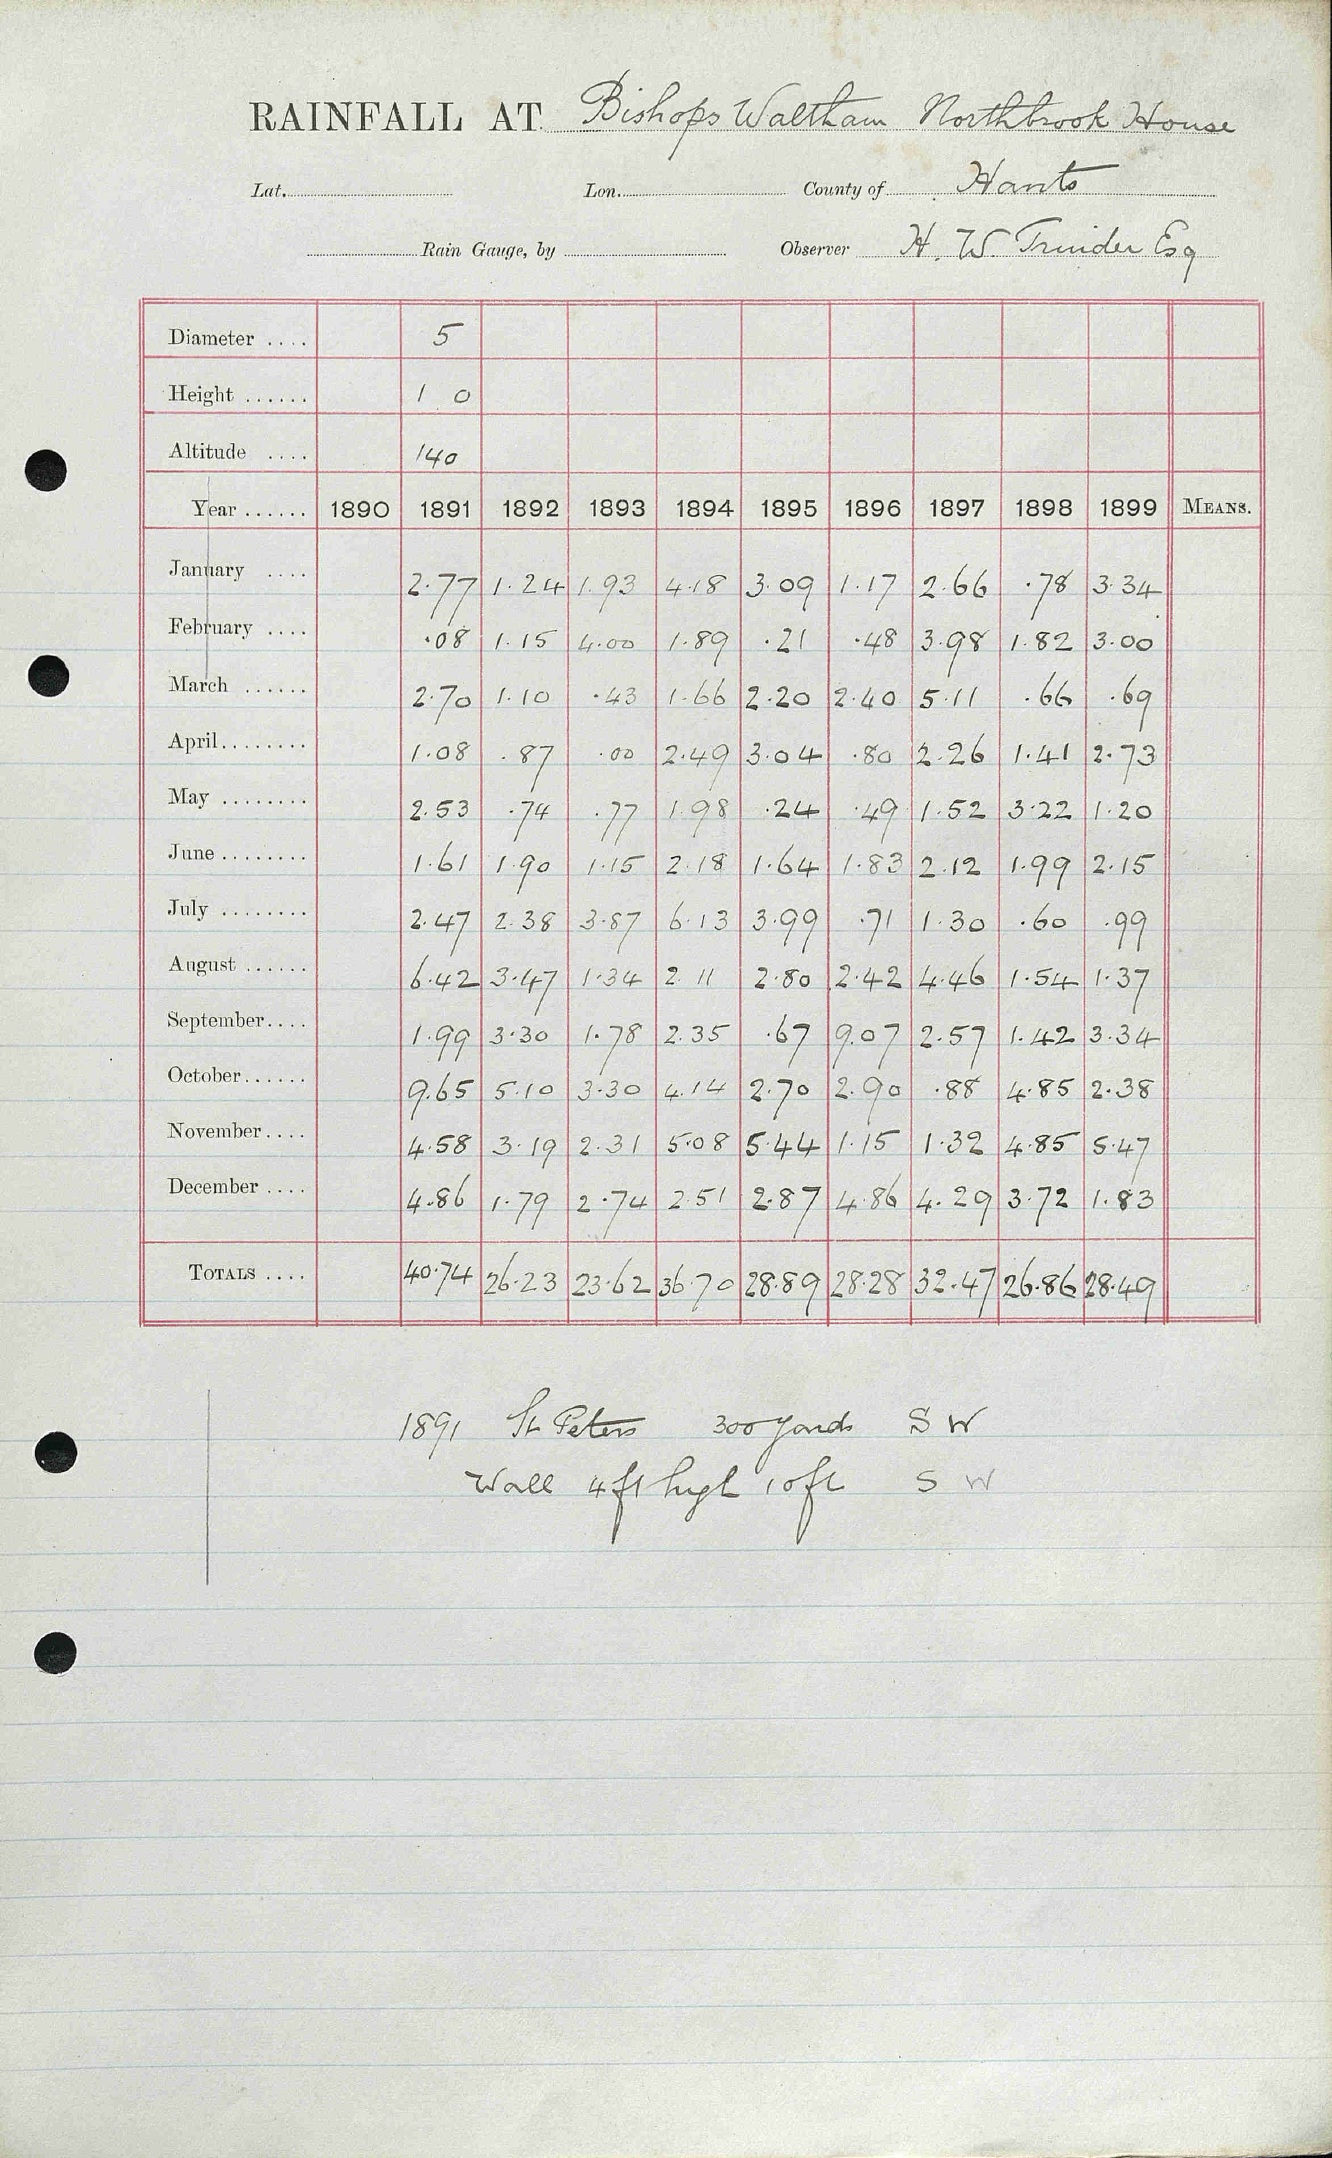 RAINFALL AT Bishops Waltham Northbrook House
Lat. Lon. County of Hants
Rain Gauge, by Observer H. W. Trinder Esq
Diameter .... 5
Height ...... 1 0
Altitude .... 140
Year ...... 1890 1891 1892 1893 1894 1895 1896 1897 1898 1899 MEANS.
January .... 2.77 1.24 1.93 4.18 3.09 1.17 2.66 .78 3.34
February .... .08 1.15 4.00 1.89 .21 .48 3.98 1.82 3.00
March ...... 2.70 1.10 .43 1.66 2.20 2.40 5.11 .66 .69
April........ 1.08 .87 .00 2.49 3.04 .80 2.26 1.41 2.73
May ........ 2.53 .74 .77 1.98 .24 .49 1.52 3.22 1.20
June ........ 1.61 1.90 1.15 2.18 1.64 1.83 2.12 1.99 2.15
July ........ 2.47 2.38 3.87 6.13 3.99 .71 1.30 .60 .99
August ...... 6.42 3.47 1.34 2.11 2.80 2.42 4.46 1.54 1.37
September.... 1.99 3.30 1.78 2.35 .67 9.07 2.57 1.42 3.34
October...... 9.65 5.10 3.30 4.14 2.70 2.90 .88 4.85 2.38
November.... 4.58 3.19 2.31 5.08 5.44 1.15 1.32 4.85 5.47
December .... 4.86 1.79 2.74 2.51 2.87 4.86 4.29 3.72 1.83
TOTALS .... 40.74 26.23 23.62 36.70 28.89 28.28 32.47 26.86 28.49
1891 St Peters 300 yards S W
Wall 4ft high 10ft S W